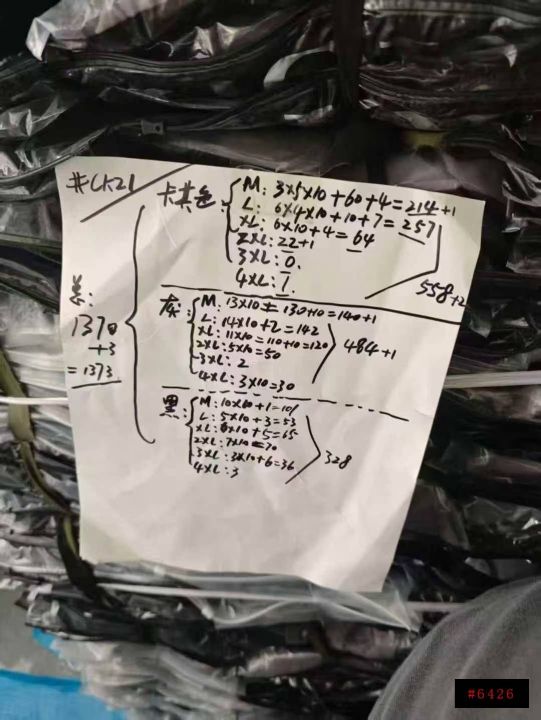 #CK21
卡其色:
M: 3×5×10+60+4=214+1
L: 6×4×10+10+7=257
XL: 6×10+4=64
2XL: 22+1
3XL: 0.
4XL: 1.
558+2
灰:
M: 13×10=130+10=140+1
L: 14×10+2=142
XL: 11×10=110+10=120
2XL: 5×10=50
3XL: 2
4XL: 3×10=30
484+1
黑:
M: 10×10+1=101
L: 5×10+3=53
XL: 6×10+5=65
2XL: 7×10=70
3XL: 3×10+6=36
4XL: 3
328
1370
+3
=1373
#6426